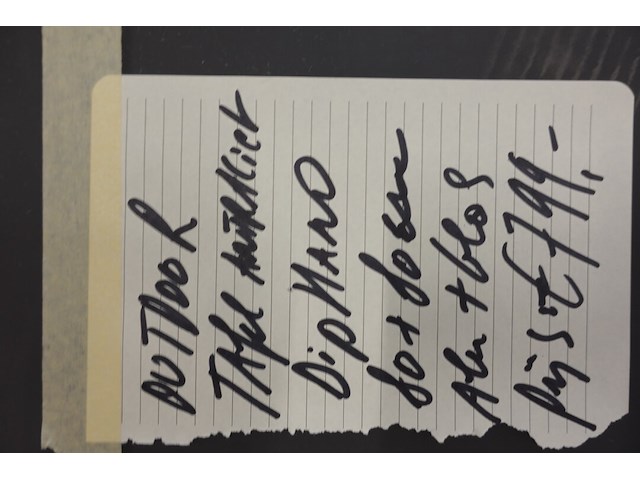 OUTDOOR
TAFEL ANTRACIET
DipHANO
80 x 80 cm
Alu + glas
prijs: € 799,-